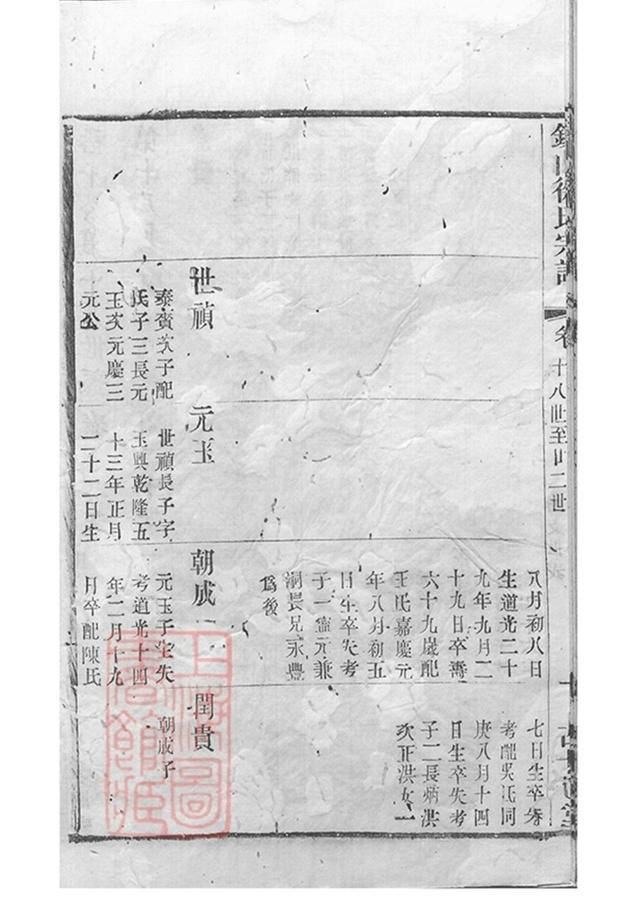 徐氏宗譜
卷
十八世至廿二世
八月初八日
生道光二十
九年九月二
十九日卒壽
六十九歲配
王氏嘉慶元
年八月初五
日生卒失考
子一憲元兼
祧長兄永豐
爲後
七日生卒失
考配吳氏同
庚八月十四
日生卒失考
子二長炳洪
次正洪女一
世禎
泰賓次子配
氏子三長元
玉次元慶三
元公
元玉
世禎長子字
玉興乾隆五
十三年正月
二十二日生
朝成
元玉子生失
考道光十四
年二月十九
日卒配陳氏
閏貴
朝成子
上海圖
書館